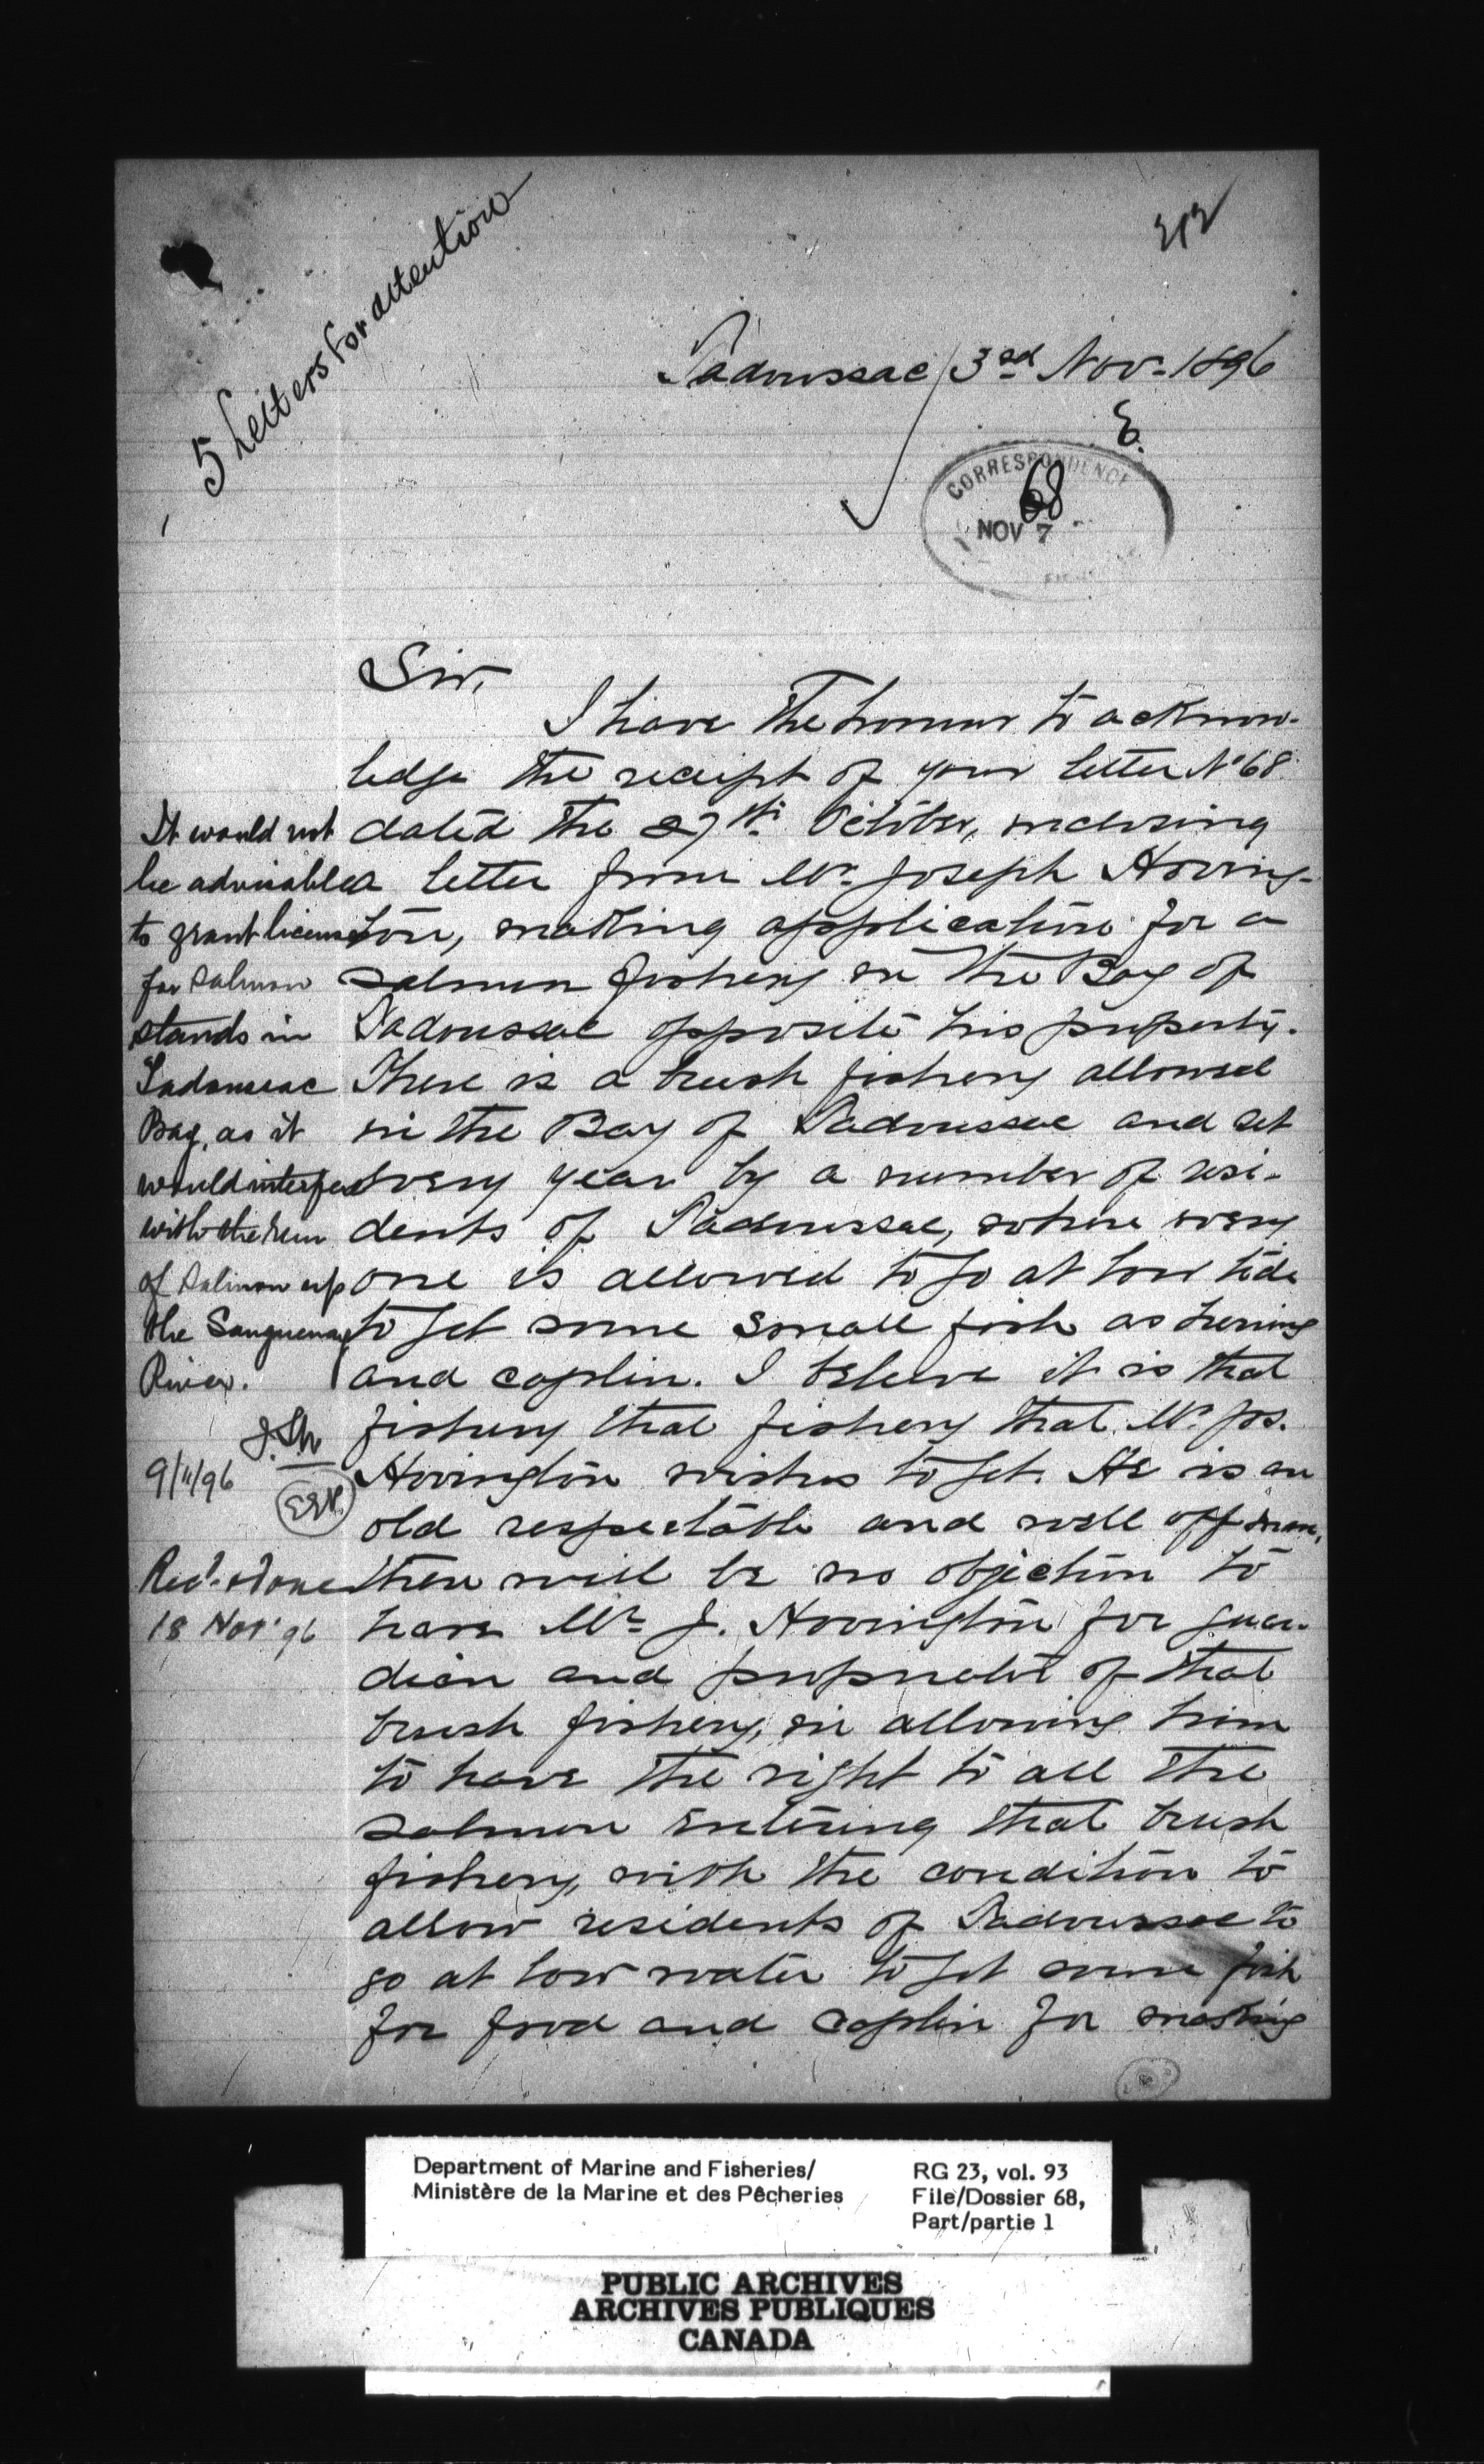 5 Letters for attention
312
Tadoussac 3rd Nov. 1896
E.
CORRESPONDENCE
68
NOV 7
Sir,
I have the honour to acknow-
ledge the receipt of your letter No 68
dated the 27th October, inclosing
a letter from Mr. Joseph Hoving-
ton, making application for a
salmon fishery in the Bay of
Tadoussac opposite his property.
There is a brush fishery allowed
in the Bay of Tadoussac and set
every year by a number of resi-
dents of Tadoussac, where every
one is allowed to go at low tide
to get some small fish as hering
and caplin. I beleive it is that
fishery that fishery that Mr Jos.
Hovington wishes to get. He is an
old respectable and well off man,
there will be no objection to
have Mr J. Hovington for guar-
dian and propriator of that
brush fishery, in allowing him
to have the right to all the
salmon entering that brush
fishery, with the condition to
allow residents of Tadoussac to
go at low water to get some fish
for food and caplin for making
It would not
be advisable
to grant license
for salmon
stands in
Tadoussac
Bay, as it
would interfere
with the run
of salmon up
the Sanguenay
River.
9/11/96
EEP.
Recd. & done
18 Nov' 96
Department of Marine and Fisheries/
Ministère de la Marine et des Pêcheries
RG 23, vol. 93
File/Dossier 68,
Part/partie 1
PUBLIC ARCHIVES
ARCHIVES PUBLIQUES
CANADA